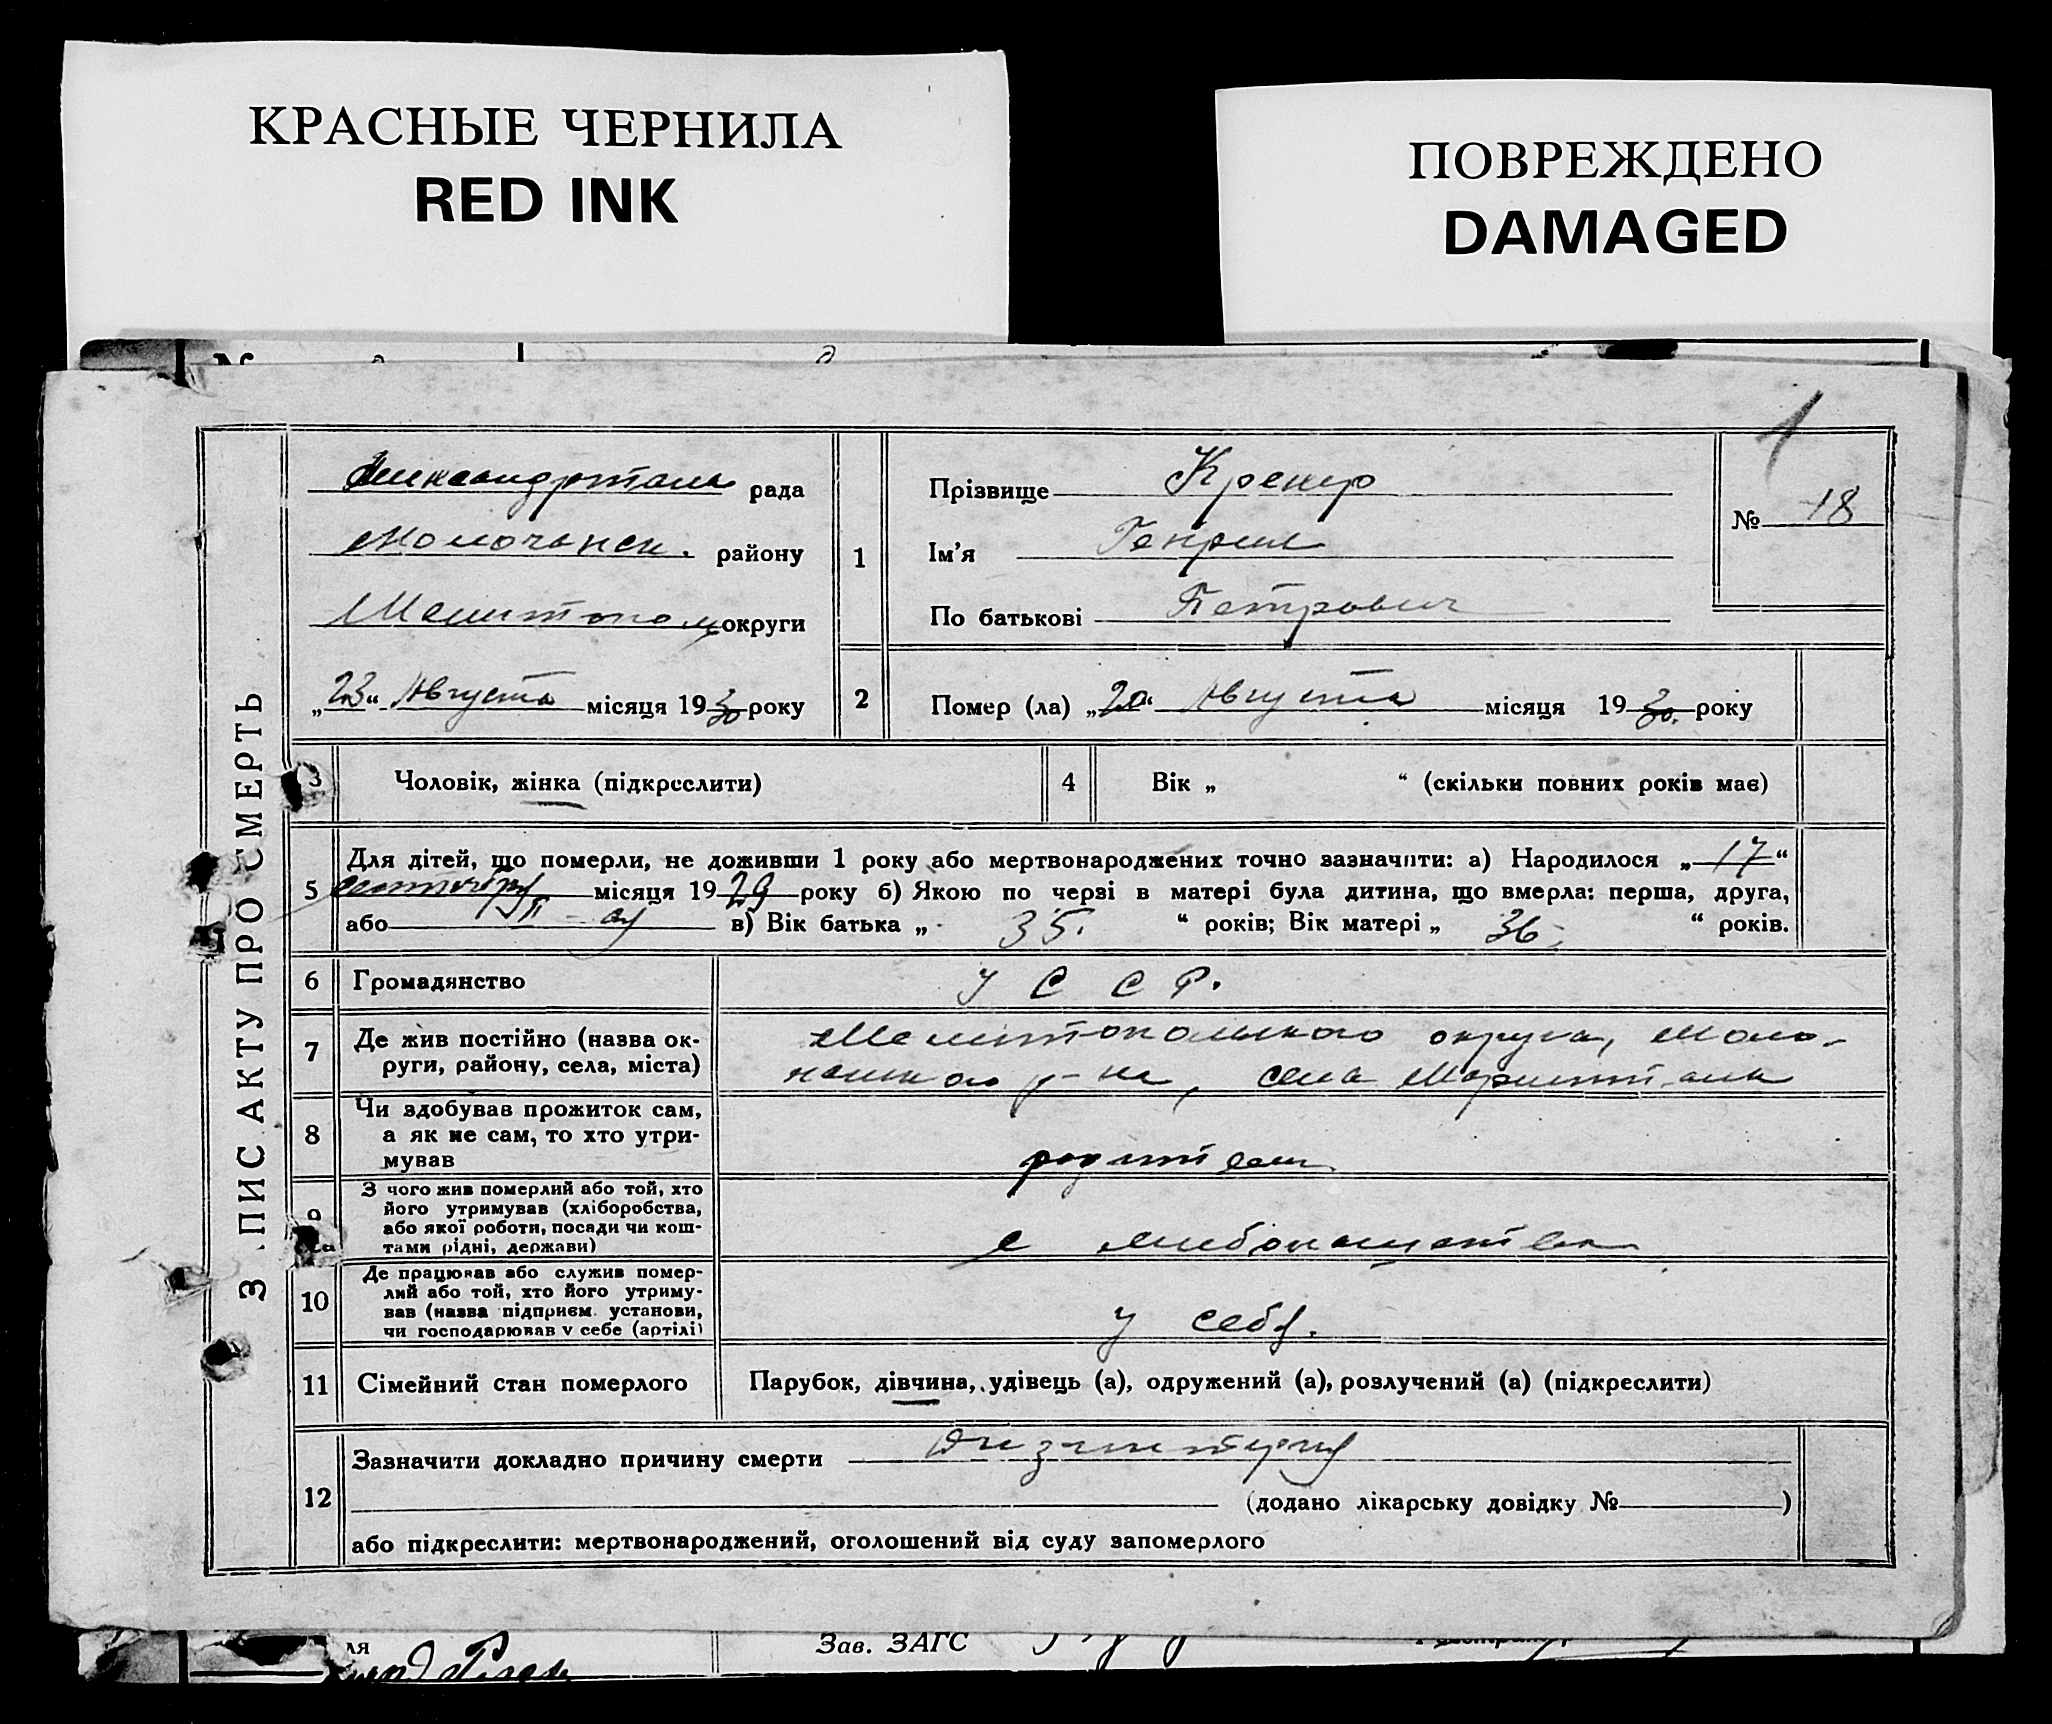 КРАСНЫЕ ЧЕРНИЛА
RED INK
ПОВРЕЖДЕНО
DAMAGED
1
ЗАПИС АКТУ ПРО СМЕРТЬ
Александртал рада
Молочанск. району
Мелитопол округи
„23“ Августа місяця 1930 року
1
Прізвище Крекер
Ім’я Генрих
По батькові Петрович
№ 18
2
Помер (ла) „20“ Августа місяця 1930. року
3
Чоловік, жінка (підкреслити)
4
Вік „ “ (скільки повних років має)
5
Для дітей, що померли, не доживши 1 року або мертвонароджених точно зазначити: а) Народилося „17“
сентября місяця 1929 року б) Якою по черзі в матері була дитина, що вмерла: перша, друга,
або II-ая в) Вік батька „ 35. “ років; Вік матері „ 36. “ років.
6
Громадянство
У С С Р.
7
Де жив постійно (назва ок-
руги, району, села, міста)
Мелитопольского округа, Моло-
чанского р-на, села
8
Чи здобував прожиток сам,
а як не сам, то хто утри-
мував
родители
9
З чого жив померлий або той, хто
його утримував (хліборобства,
або якої роботи, посади чи кош-
тами рідні, держави)
с хлебопашества
10
Де працював або служив помер-
лий або той, хто його утриму-
вав (назва підприєм. установи,
чи господарював у себе (артілі)
у себя.
11
Сімейний стан померлого
Парубок, дівчина, удівець (а), одружений (а), розлучений (а) (підкреслити)
12
Зазначити докладно причину смерти Дизинтерия
(додано лікарську довідку № )
або підкреслити: мертвонароджений, оголошений від суду запомерлого
ля
Зав. ЗАГС